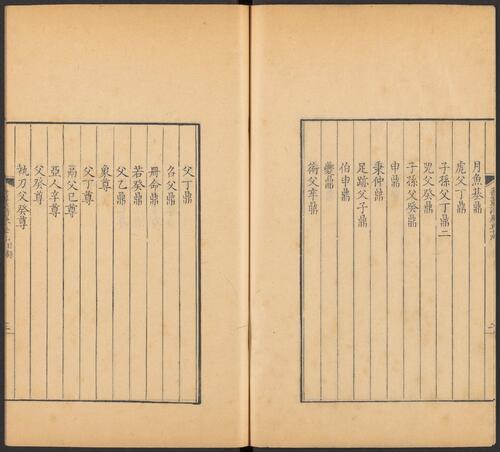 月魚基鼎
虎父丁鼎
子孫父丁鼎二
父癸鼎
子孫父癸鼎
申鼎
秉仲鼎
足跡父子鼎
伯申鼎
父辛鼎
父丁鼎
召父鼎
冊命鼎
若癸鼎
父乙鼎
象尊
父丁尊
父己尊
亞人辛尊
父癸尊
執刀父癸尊